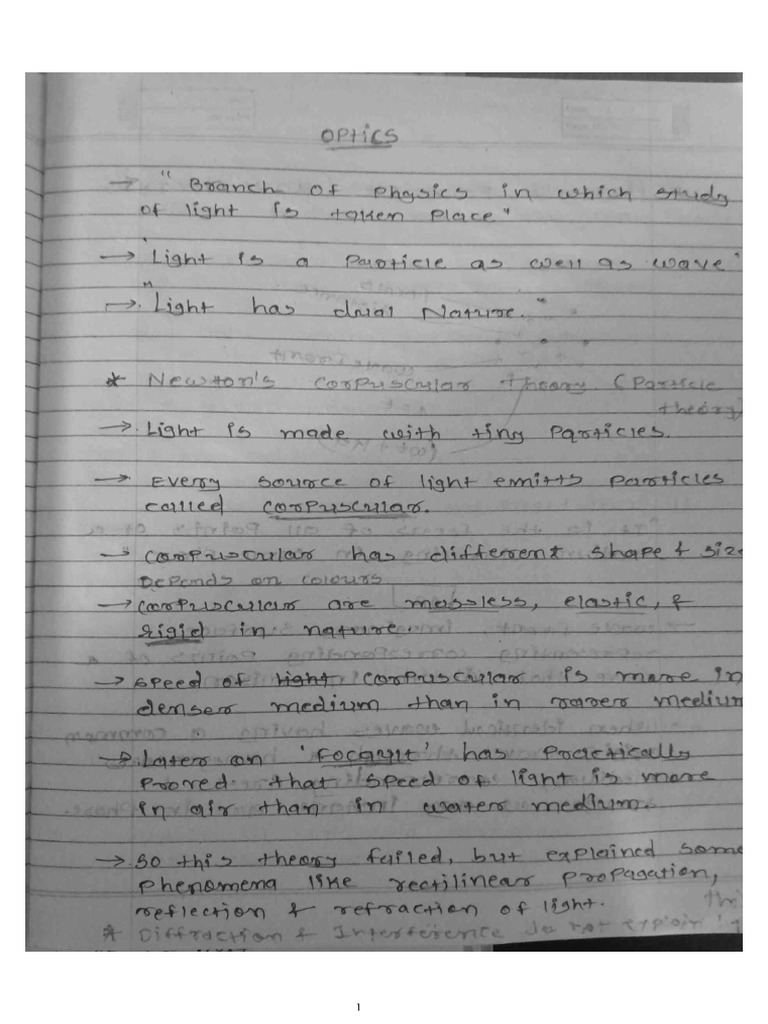 OPTICS
→ "Branch of Physics in which study
of light is taken place"
→ "Light is a Particle as well as wave"
→ "Light has dual Nature."
* Newton's corpuscular theory (Particle
theory)
→ Light is made with tiny particles.
→ Every source of light emitts particles
called corpuscular.
→ corpuscular has different shape & size
Depends on colours
→ corpuscular are massless, elastic, &
rigid in nature.
→ speed of light corpuscular is more in
denser medium than in rarer medium
→ Later on 'focault' has Practically
Proved that speed of light is more
in air than in water medium.
→ So this theory failed, but explained some
phenomena like rectilinear propagation,
reflection & refraction of light.
* Diffraction & Interference do not explain
1